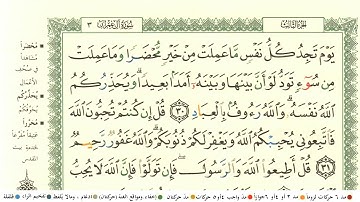 الجزء الثالث سورة آل عمران ٣
يَوْمَ تَجِدُ كُلُّ نَفْسٍ مَّا عَمِلَتْ مِنْ خَيْرٍ مُّحْضَرًا وَمَا عَمِلَتْ
مِن سُوٓءٍ تَوَدُّ لَوْ أَنَّ بَيْنَهَا وَبَيْنَهُۥٓ أَمَدًۢا بَعِيدًا ۗ وَيُحَذِّرُكُمُ
ٱللَّهُ نَفْسَهُۥ ۗ وَٱللَّهُ رَءُوفٌۢ بِٱلْعِبَادِ ٣٠ قُلْ إِن كُنتُمْ تُحِبُّونَ ٱللَّهَ
فَٱتَّبِعُونِى يُحْبِبْكُمُ ٱللَّهُ وَيَغْفِرْ لَكُمْ ذُنُوبَكُمْ ۗ وَٱللَّهُ غَفُورٌ رَّحِيمٌ
٣١ قُلْ أَطِيعُوا۟ ٱللَّهَ وَٱلرَّسُولَ ۖ فَإِن تَوَلَّوْا۟ فَإِنَّ ٱللَّهَ لَا يُحِبُّ
مُّحْضَرًا
مشاهداً
في صحف
الأعمال
يُحَذِّرُكُمُ
يخوّفكم
مُحَرَّرًا
عتيقاً مفرّغاً
لخدمة بيت
المقدس